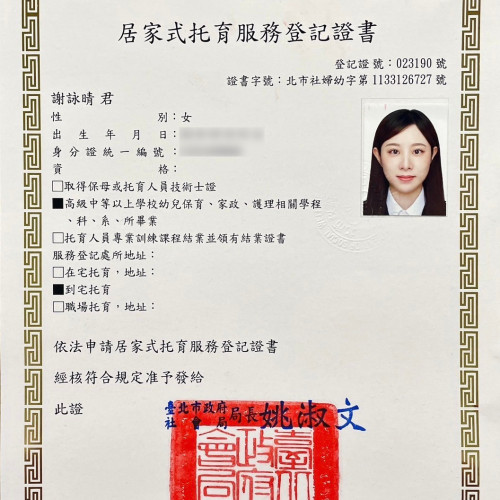 居家式托育服務登記證書
登記證號：023190 號
證書字號：北市社婦幼字第 1133126727 號
謝詠晴 君
性別：女
出生年月日：
身分證統一編號：
資格：
□取得保母或托育人員技術士證
■高級中等以上學校幼兒保育、家政、護理相關學程
、科、系、所畢業
□托育人員專業訓練課程結業並領有結業證書
服務登記處所地址：
□在宅托育，地址：
■到宅托育
□職場托育，地址：
依法申請居家式托育服務登記證書
經核符合規定准予發給
此證
臺北市政府
社會局
局長姚淑文